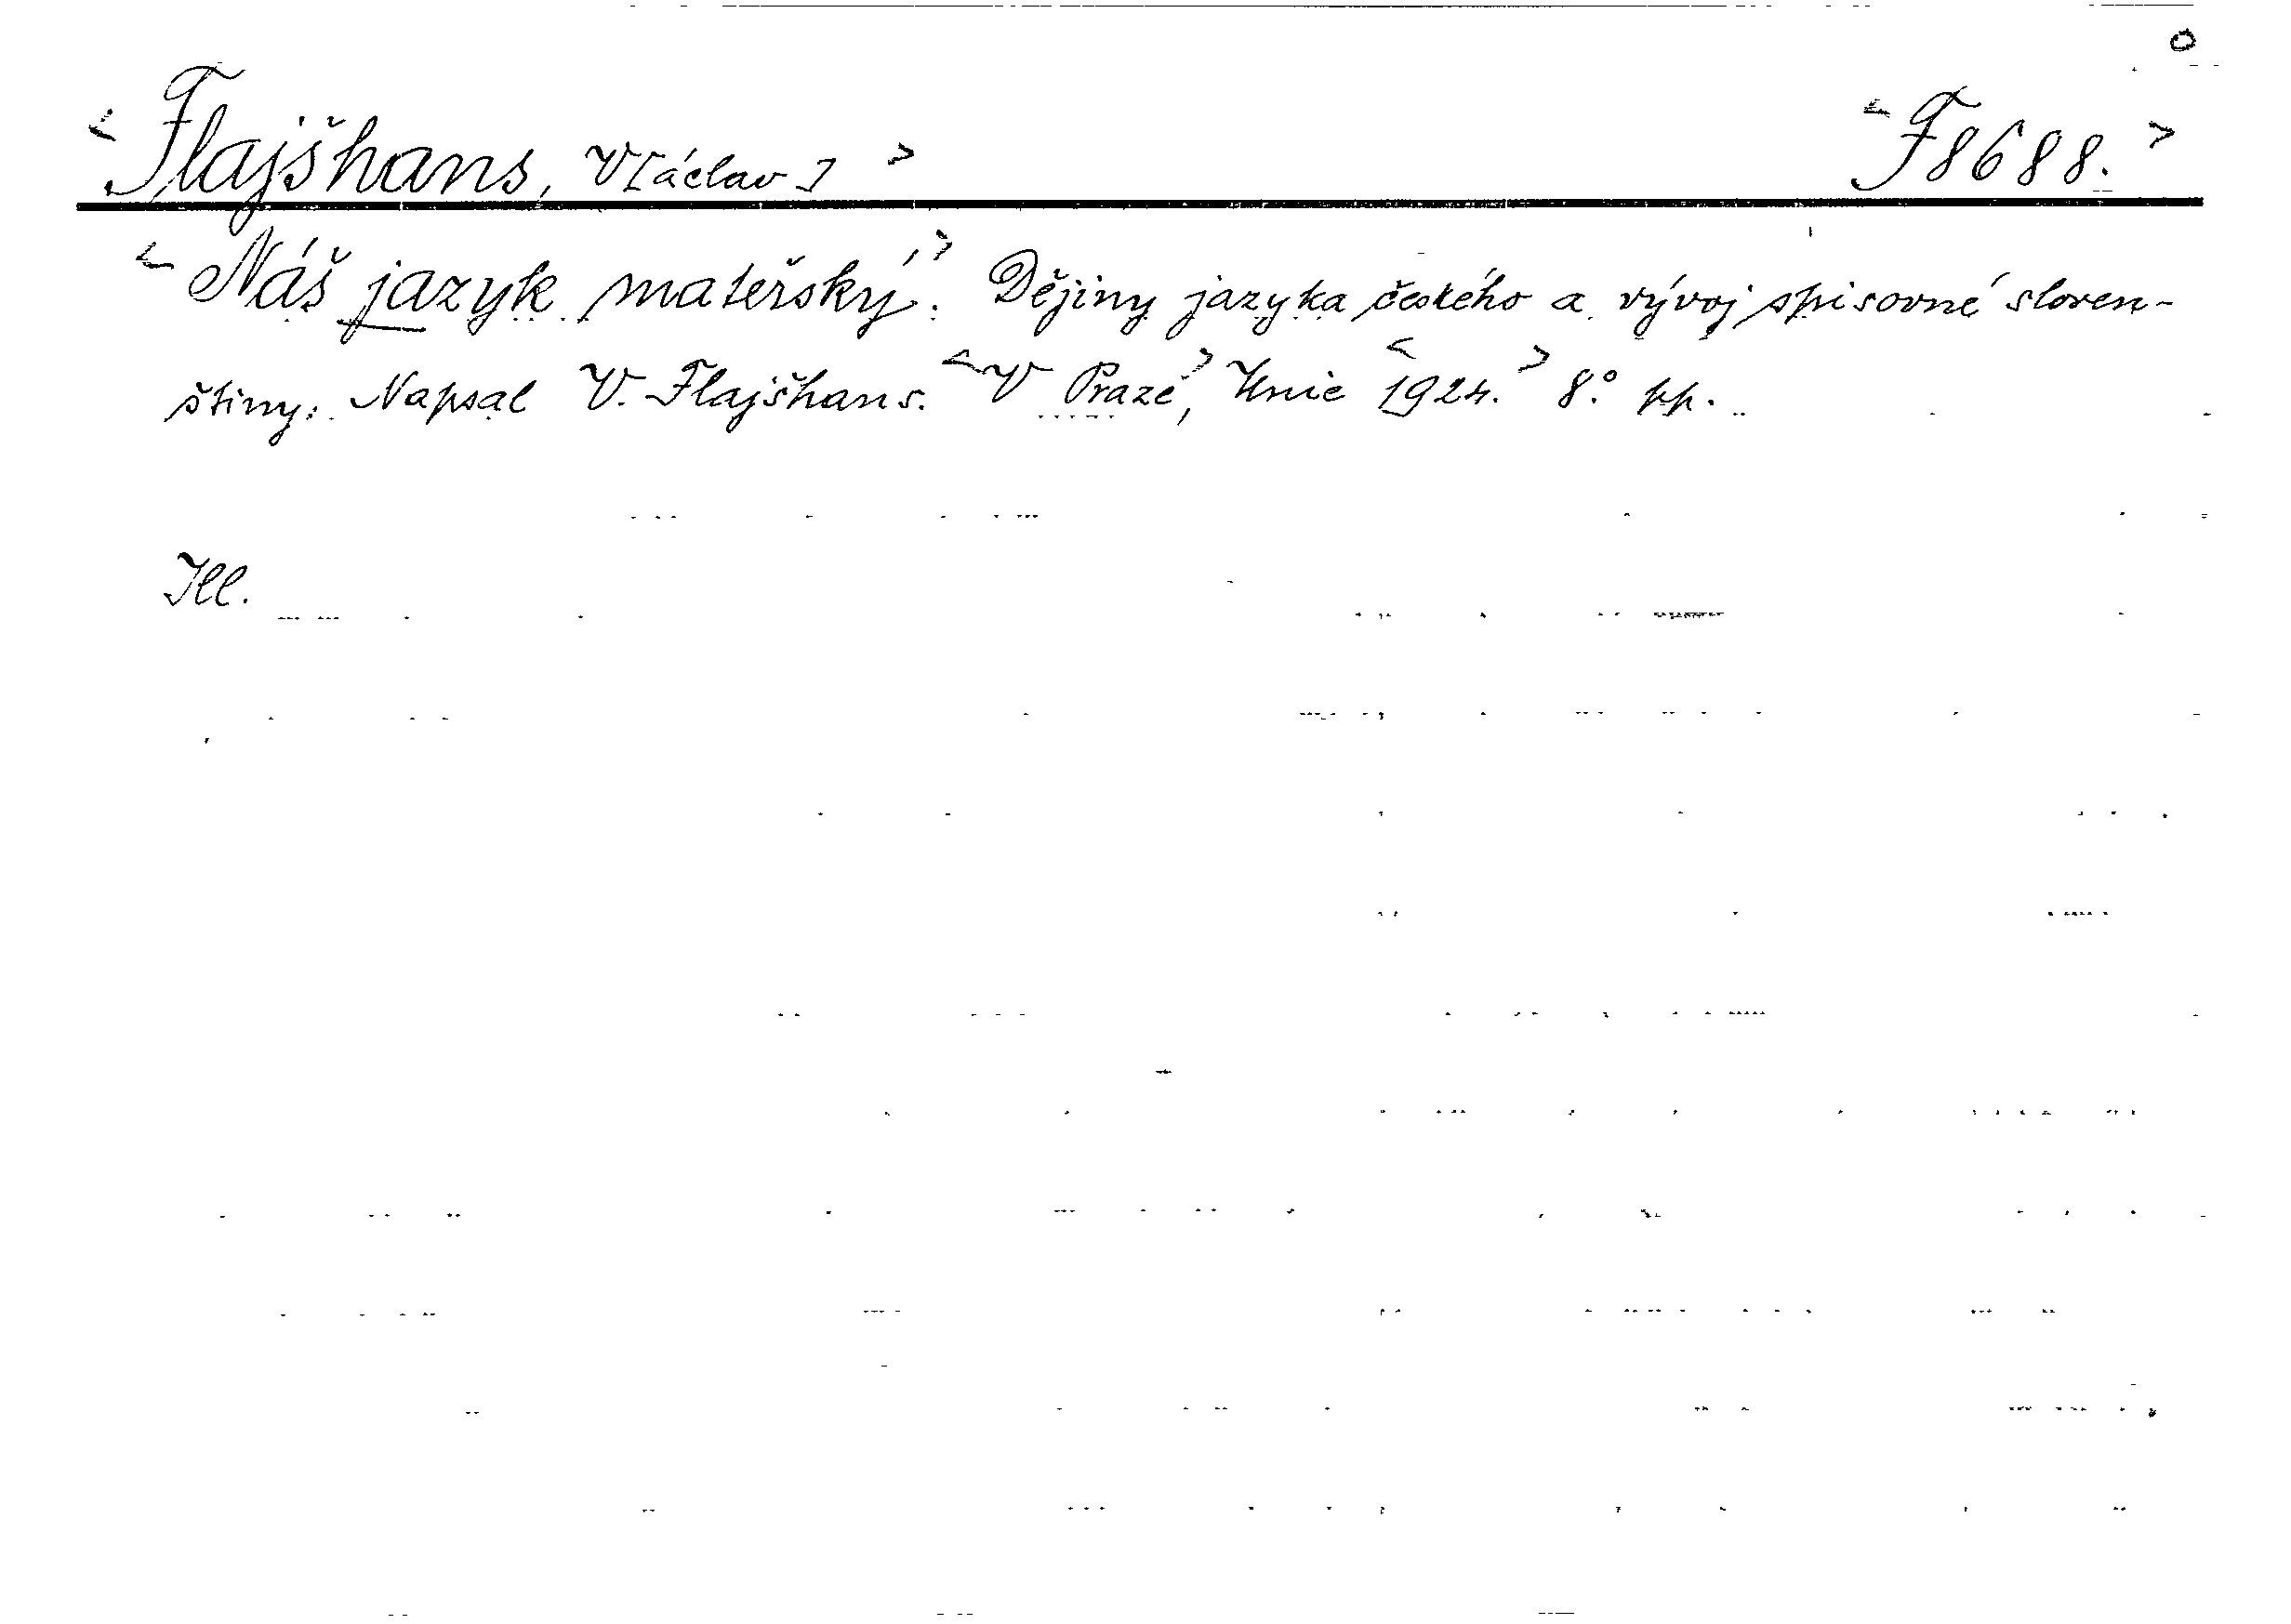 o
< Flajšhans, V[áclav] > < F 8688. >
< Náš jazyk mateřský. > Dějiny jazyka českého a vývoj spisovné sloven-
štiny. Napsal V. Flajšhans. < V Praze >, Unie < 1924. > 8.° pp.
Ill.